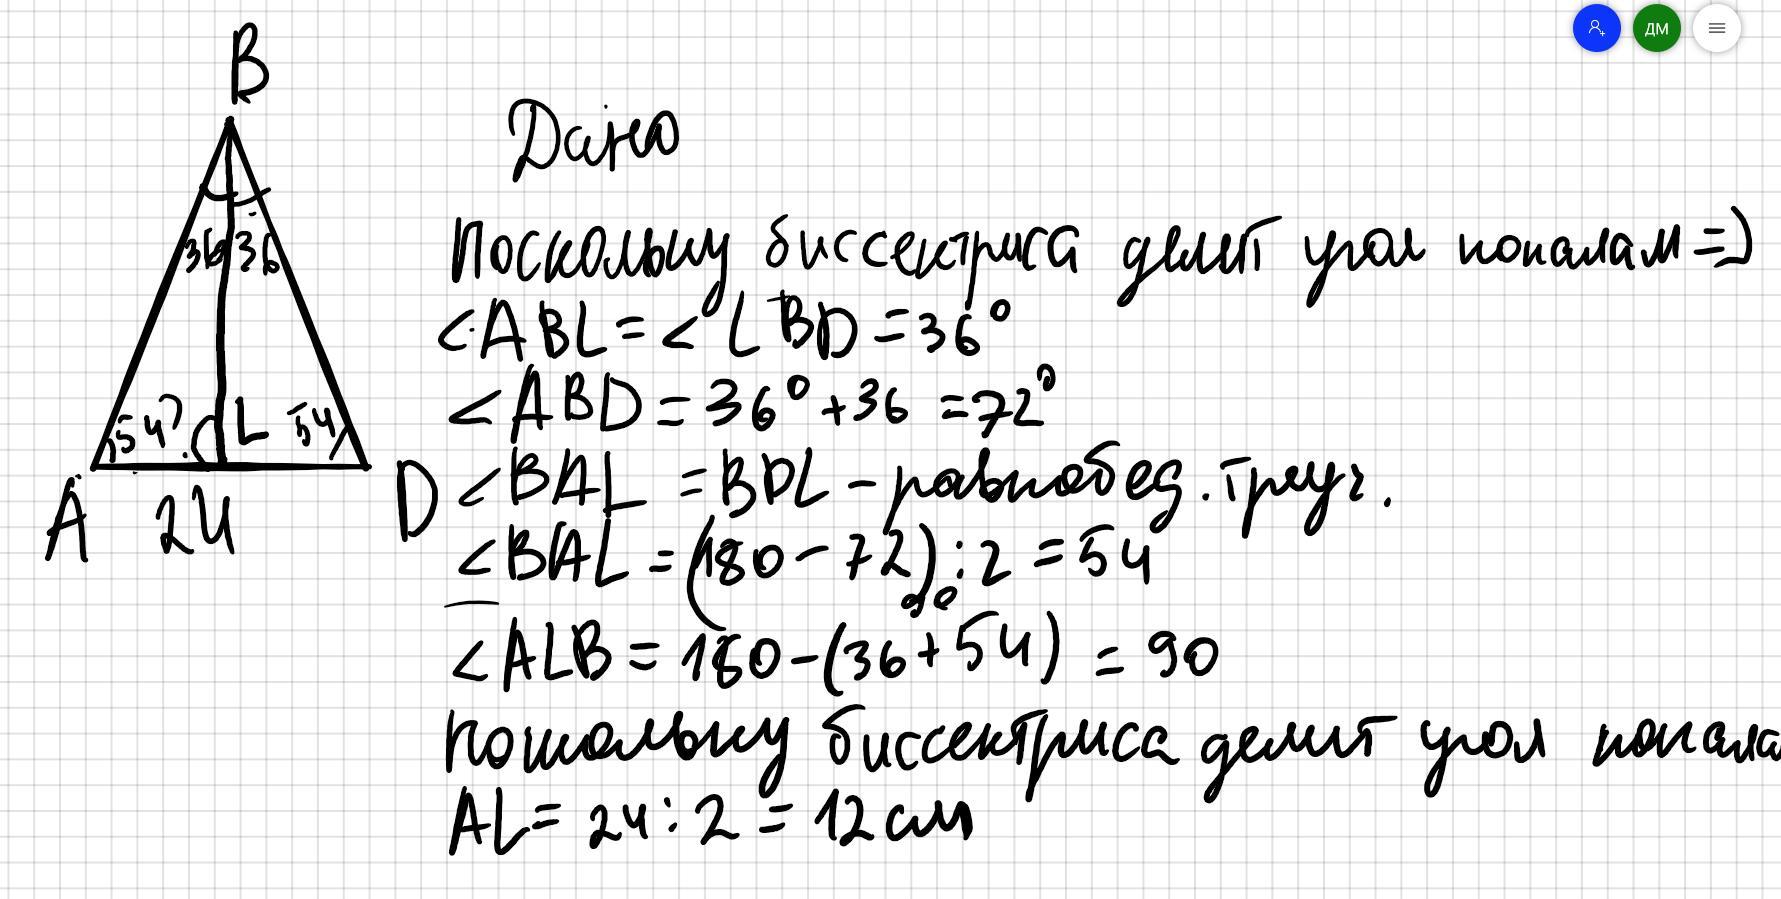 ДМ
B
Дано
36 36
Поскольку биссектриса делит угол пополам =>
<ABL = < LBD = 36°
<ABD = 36° + 36 = 72°
54? L 54
<BAL = BDL - равнобед. треуг.
A 24 D
<BAL = (180 - 72) : 2 = 54
<ALB = 180 - (36 + 54) = 90
поскольку биссектриса делит угол попала
AL = 24 : 2 = 12 см